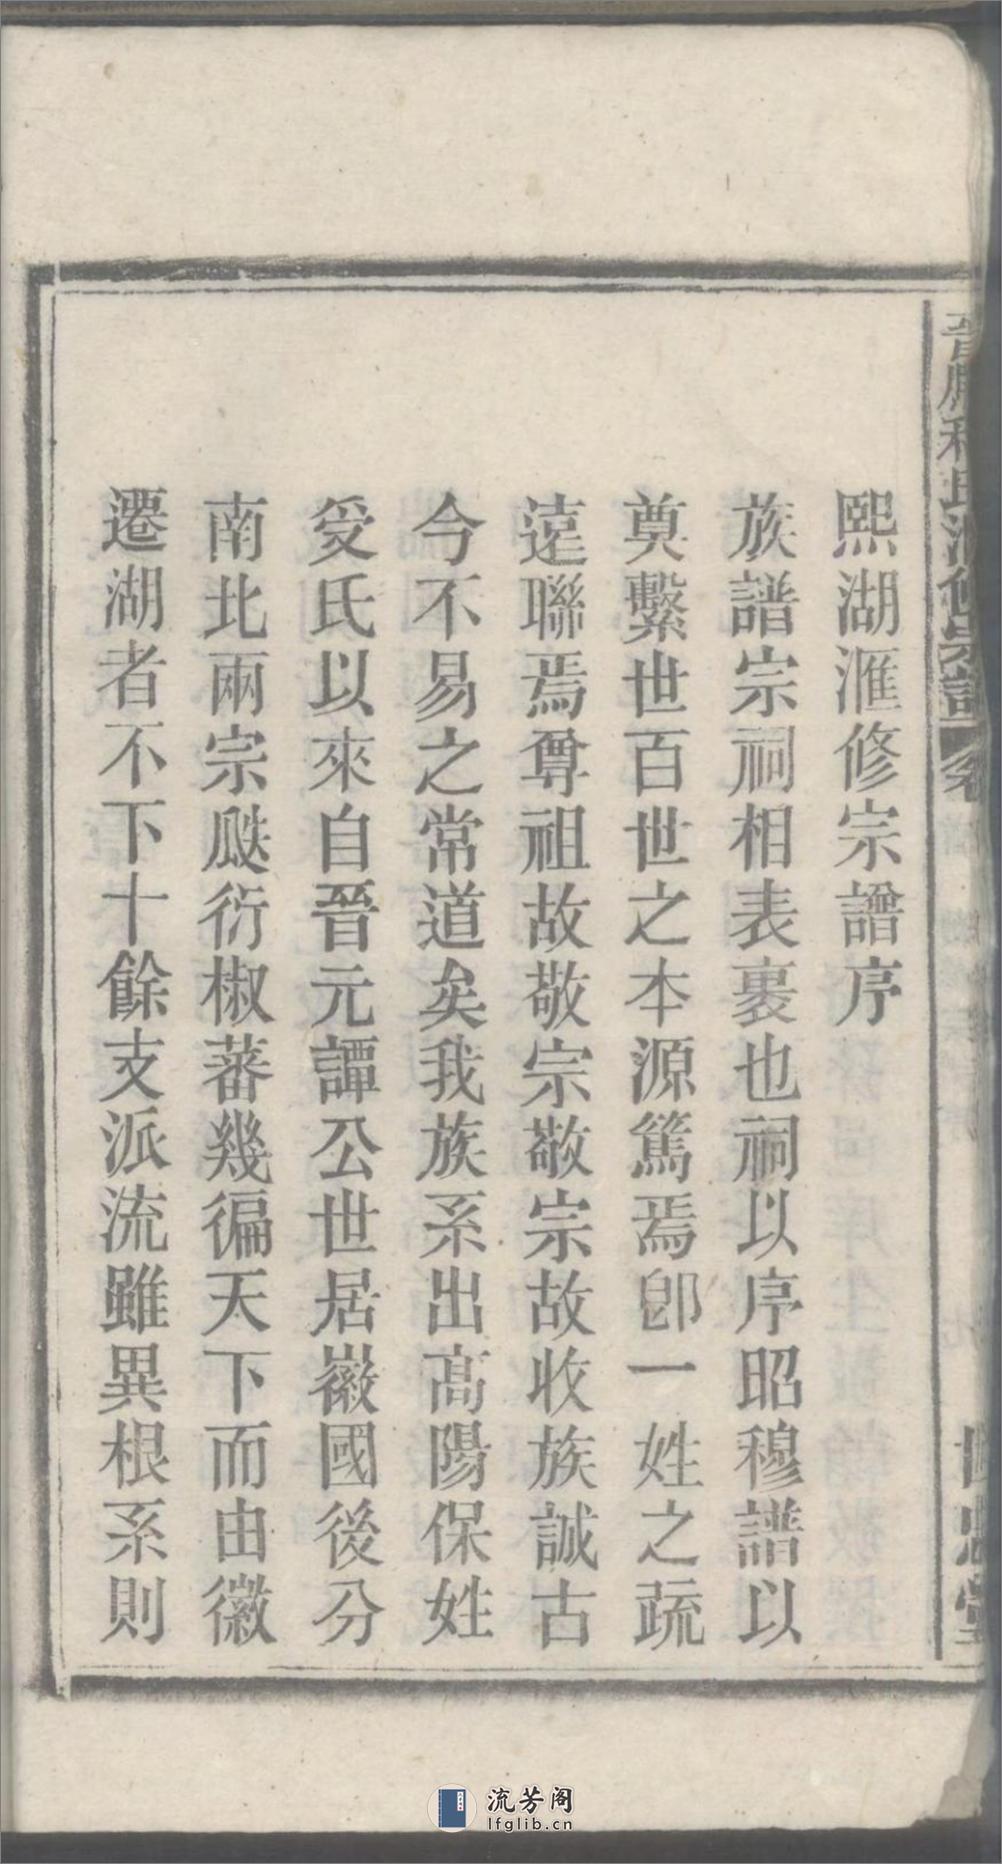 熙湖滙修宗譜序
族譜宗祠相表裏也祠以序昭穆譜以
奠繫世百世之本源篤焉卽一姓之疏
遠聯焉尊祖故敬宗敬宗故收族誠古
今不易之常道矣我族系出高陽保姓
受氏以來自晉元譚公世居徽國後分
南北兩宗瓞衍椒蕃幾徧天下而由徽
遷湖者不下十餘支派流雖異根系則
世忠堂
流芳阁
lfglib.cn